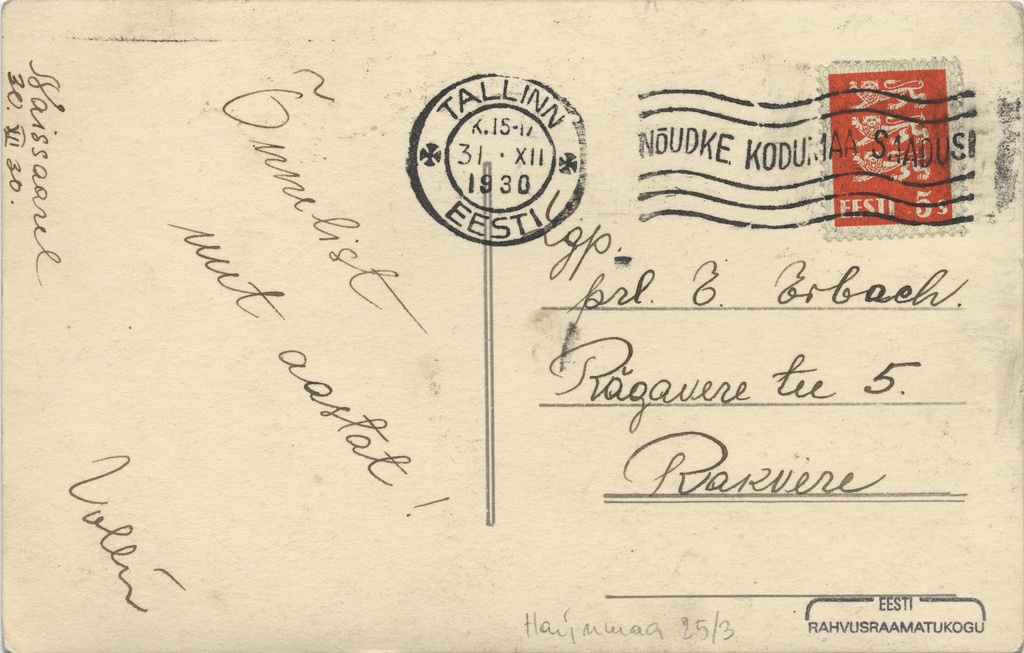 Naissaarel
30. XII 30.
Õnnelist
uut aastat!
TALLINN
K.15-17
31. XII
1930
EESTI
NÕUDKE KODUMAA SAADUSI
EESTI 5 S
Lgp.
prl. E. Erbach.
Rägavere tee 5.
Rakvere
Harjumaa 25/3
EESTI
RAHVUSRAAMATUKOGU